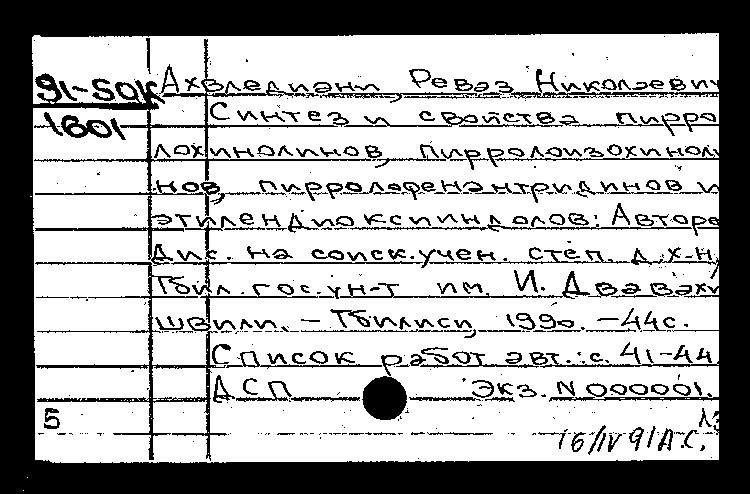 91-50К Ахвледиани, Реваз Николаевич
1601 Синтез и свойства пирро
лохинолинов, пирролоизохиноли
нов, пирролофенантридинов и
этилендиоксииндолов: Авторе
Дис. на соиск. учен. степ. д.х.н,
Тбил. гос. ун-т им. И. Джавахи
швили. – Тбилиси, 1990. – 44с.
Список работ авт.: с. 41-44
ДСП Экз. N 000001.
5
16/IV 91 А.С.